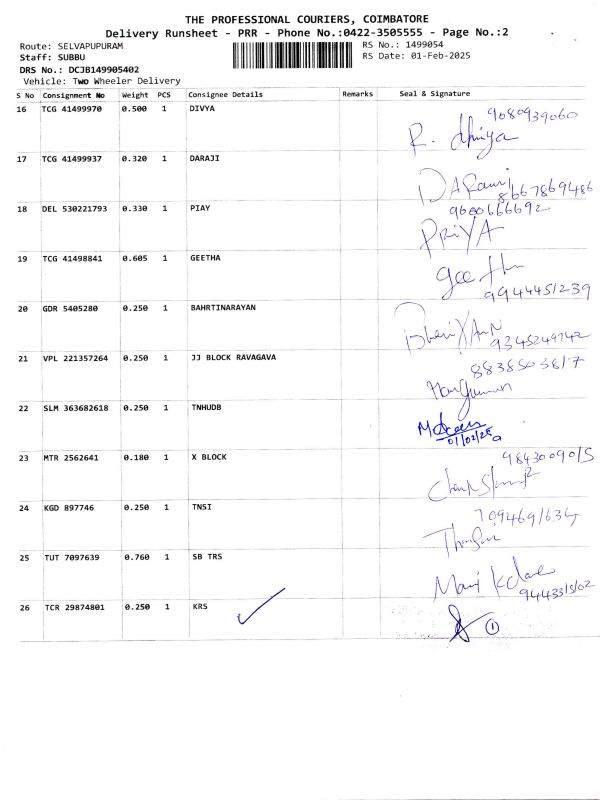 THE PROFESSIONAL COURIERS, COIMBATORE
Delivery Runsheet - PRR - Phone No.:0422-3505555 - Page No.:2
Route: SELVAPUPURAM
RS No.: 1499054
Staff: SUBBU
RS Date: 01-Feb-2025
DRS No.: DCJB149905402
Vehicle: Two Wheeler Delivery
S No Consignment No Weight PCS Consignee Details Remarks Seal & Signature
16 TCG 41499970 0.500 1 DIVYA 9080939060
R.
17 TCG 41499937 0.320 1 DARAJI
8667869486
18 DEL 530221793 0.330 1 PIAY 9600666692
PRIYA
19 TCG 41498841 0.605 1 GEETHA
9944451239
20 GDR 5405280 0.250 1 BAHRTINARAYAN
9345249742
21 VPL 221357264 0.250 1 JJ BLOCK RAVAGAVA 8838503817
22 SLM 363682618 0.250 1 TNHUDB
01/02/25
23 MTR 2562641 0.180 1 X BLOCK 9843009015
24 KGD 897746 0.250 1 TNSI 7094691634
25 TUT 7097639 0.760 1 SB TRS
9443315102
26 TCR 29874801 0.250 1 KRS
1